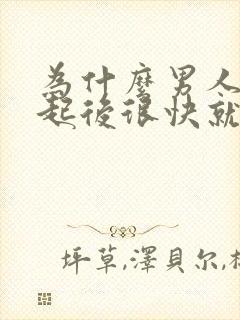 為什麼男人
起後很快就
坪草,澤貝尔,